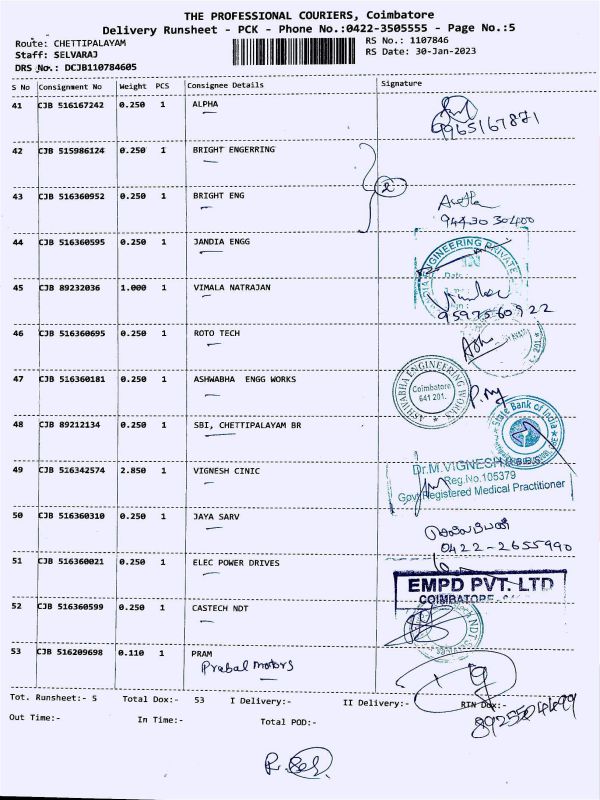 THE PROFESSIONAL COURIERS, Coimbatore
Delivery Runsheet - PCK - Phone No.:0422-3505555 - Page No.:5
Route: CHETTIPALAYAM
RS No.: 1107846
Staff: SELVARAJ
RS Date: 30-Jan-2023
DRS No.: DCJB110784605
S No Consignment No Weight PCS Consignee Details Signature
41 CJB 516167242 0.250 1 ALPHA
9965167871
42 CJB 515986124 0.250 1 BRIGHT ENGERRING
2
43 CJB 516360952 0.250 1 BRIGHT ENG
94430 30400
44 CJB 516360595 0.250 1 JANDIA ENGG
ENGINEERING PRIVATE
45 CJB 89232036 1.000 1 VIMALA NATRAJAN
9597560922
46 CJB 516360695 0.250 1 ROTO TECH
47 CJB 516360181 0.250 1 ASHWABHA ENGG WORKS
ASHWABHA ENGINEERING WORKS
Coimbatore
641 201.
48 CJB 89212134 0.250 1 SBI, CHETTIPALAYAM BR
State Bank of India
49 CJB 516342574 2.850 1 VIGNESH CINIC
Dr.M.VIGNESH
Reg.No.105379
Govt Registered Medical Practitioner
50 CJB 516360310 0.250 1 JAYA SARV
0422-2655990
51 CJB 516360021 0.250 1 ELEC POWER DRIVES
EMPD PVT. LTD
COIMBATORE
52 CJB 516360599 0.250 1 CASTECH NDT
53 CJB 516209698 0.110 1 PRAM
Prabal motors
Tot. Runsheet:- 5 Total Dox:- 53 I Delivery:- II Delivery:- RTN Dox:-
Out Time:- In Time:- Total POD:-